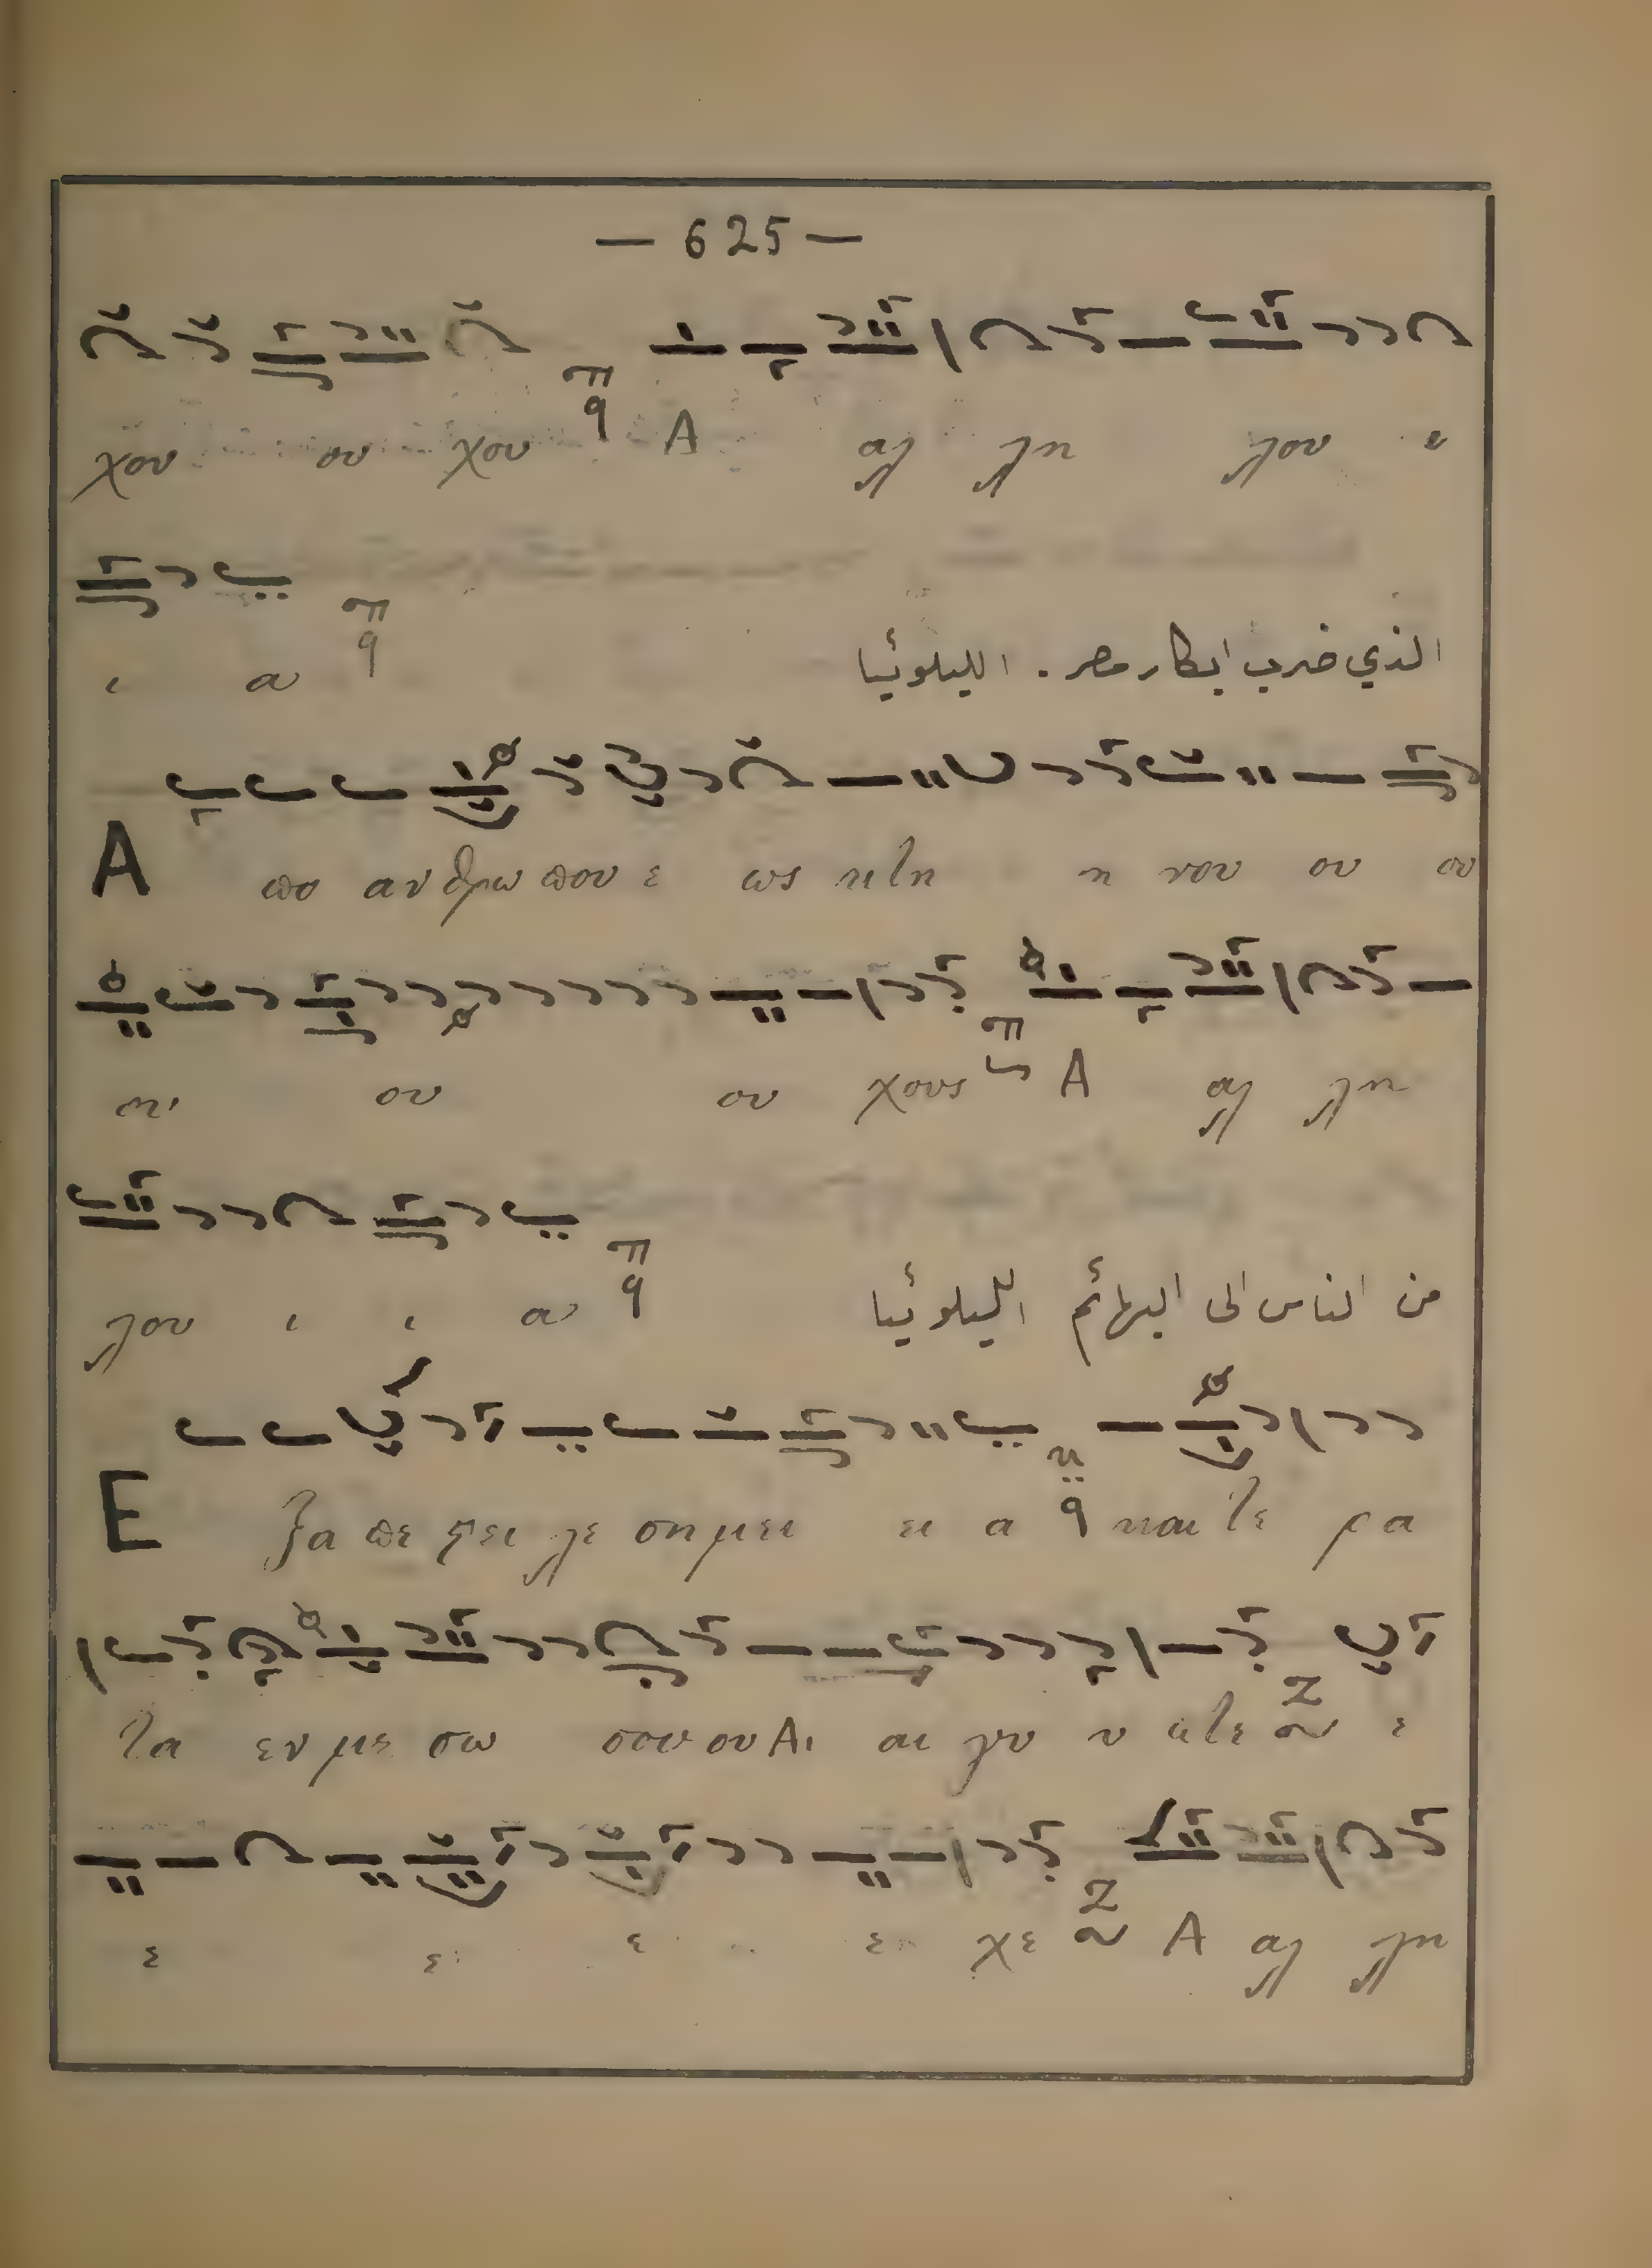 — 625 —
χου ου χου Α αλ λη λου ι
ι α الذي ضرب ابكار مصر . الليلوئيا
Α πο αν θρω που ε ως κτη η νου ου ου
ου ου χους Α αλ λη
λου ι ι α من الناس الى البهائم الليلوئيا
Ε ξα πε στει λε ση μει ει α και τε ρα
τα εν με σω σου ου Αι αι γυ υ πτε ε
ε ε ε ε χε Α αλ λη